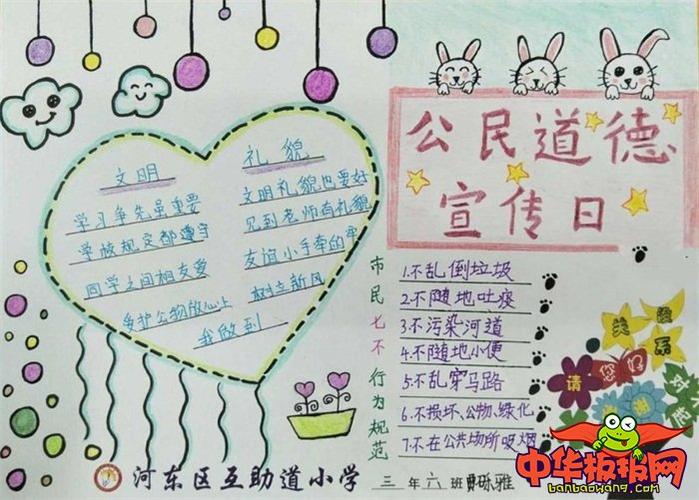 公民道德
宣传日
文明
学习争先虽重要
学校规定都遵守
同学之间相友爱
爱护公物放心上
礼貌
文明礼貌也要好
见到老师有礼貌
友谊小手牵的牢
树立新风
我做到
市民七不行为规范
1.不乱倒垃圾
2.不随地吐痰
3.不污染河道
4.不随地小便
5.不乱穿马路
6.不损坏、公物、绿化
7.不在公共场所吸烟
关系
您好
请
河东区互助道小学
三年六班
中华板报网
banbaowang.com